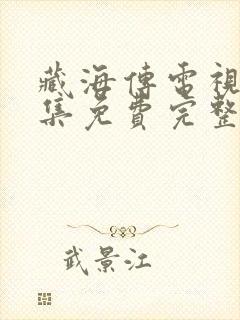 藏海傳電視
集免費完整
武景江